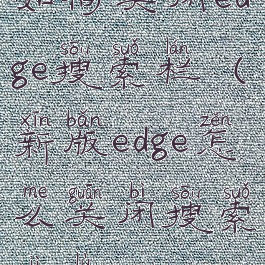 如何关闭ed
sōu suǒ lán
ge搜索栏(
xīn bǎn zěn
新版edge怎
me guān bì sōu suǒ
么关闭搜索